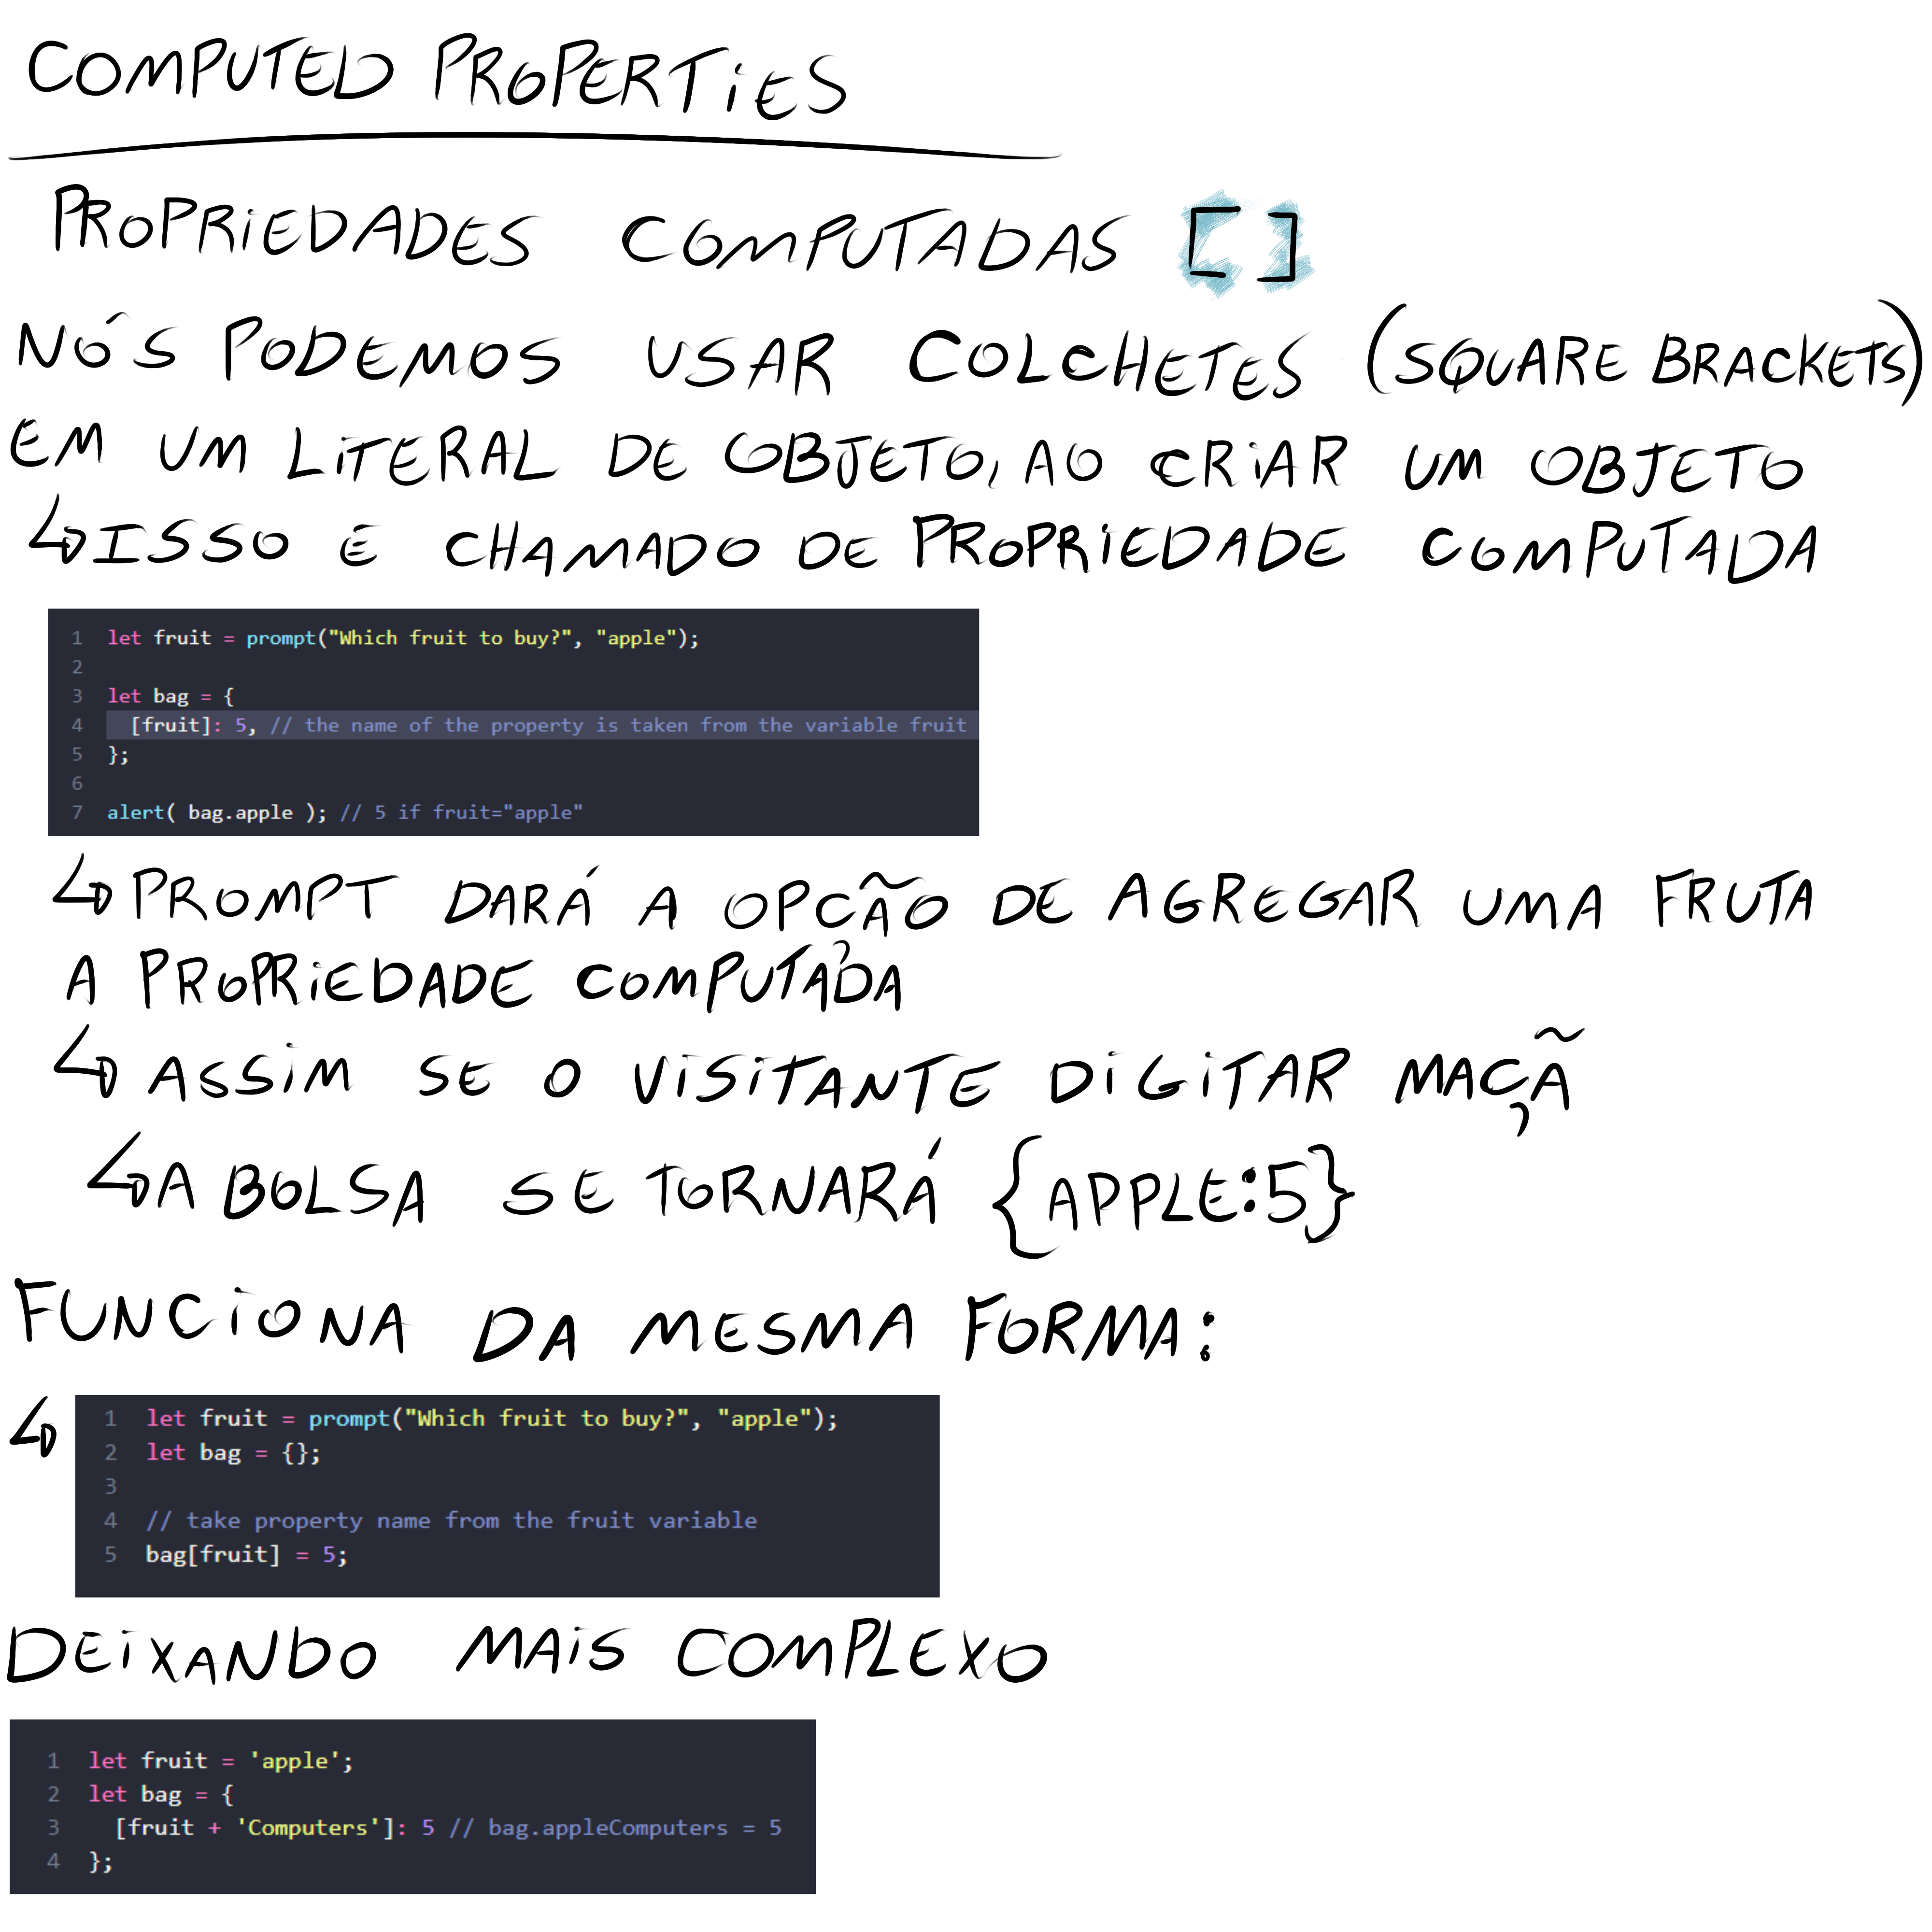 COMPUTED PROPERTIES
PROPRIEDADES COMPUTADAS []
NÓS PODEMOS USAR COLCHETES (SQUARE BRACKETS)
EM UM LITERAL DE OBJETO, AO CRIAR UM OBJETO
↳ ISSO É CHAMADO DE PROPRIEDADE COMPUTADA
1 let fruit = prompt("Which fruit to buy?", "apple");
2
3 let bag = {
4 [fruit]: 5, // the name of the property is taken from the variable fruit
5 };
6
7 alert( bag.apple ); // 5 if fruit="apple"
↳ PROMPT DARÁ A OPCÃO DE AGREGAR UMA FRUTA
A PROPRIEDADE COMPUTADA
↳ ASSIM SE O VISITANTE DIGITAR MAÇÃ
↳ A BOLSA SE TORNARÁ {APPLE:5}
FUNCIONA DA MESMA FORMA:
↳
1 let fruit = prompt("Which fruit to buy?", "apple");
2 let bag = {};
3
4 // take property name from the fruit variable
5 bag[fruit] = 5;
DEIXANDO MAIS COMPLEXO
1 let fruit = 'apple';
2 let bag = {
3 [fruit + 'Computers']: 5 // bag.appleComputers = 5
4 };